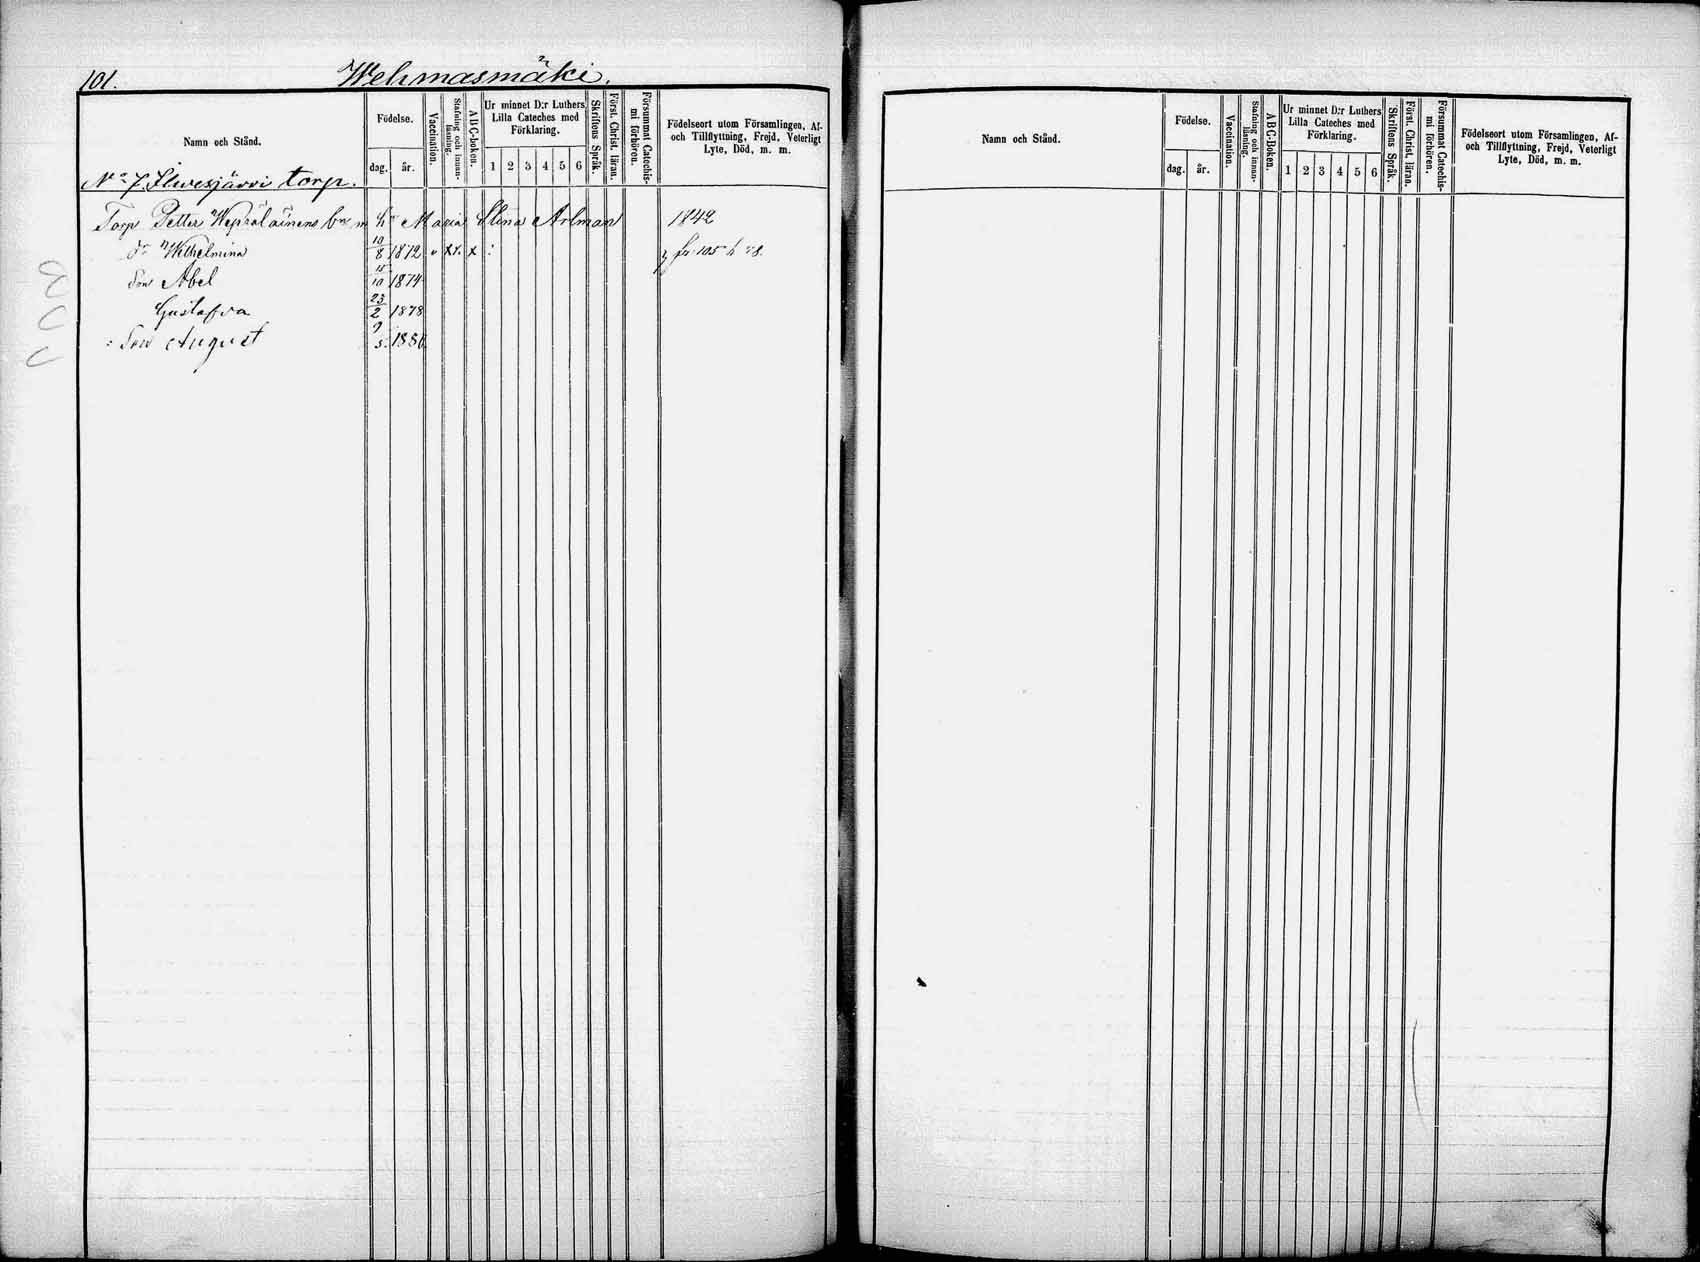 101. Wehmasmäki.
Namn och Stånd.
Födelse.
dag. år.
Vaccination.
Stafning och innan-
läsning.
A B C-boken.
Ur minnet D:r Luthers
Lilla Cateches med
Förklaring.
1 2 3 4 5 6
Skriftens Språk.
Först. Christ. läran.
Försummat Catechis-
mi förhören.
Födelseort utom Församlingen, Af-
och Tillflyttning, Frejd, Veterligt
Lyte, Död, m. m.
No 7. Ilwesjärvi torp.
Torp Petter Wepsäläinens bn m h Maria Stina Arlman 1842
dr Wilhelmina 10/8 1872 fr. 105 h 78.
Son Abel 15/10 1874
Gustafva 23/2 1878
Son August 9/5 1880
Namn och Stånd.
Födelse.
dag. år.
Vaccination.
Stafning och innan-
läsning.
A B C-Boken.
Ur minnet D:r Luthers
Lilla Cateches med
Förklaring.
1 2 3 4 5 6
Skriftens Språk.
Först. Christ. läran.
Försummat Catechis-
mi förhören.
Födelseort utom Församlingen, Af-
och Tillflyttning, Frejd, Veterligt
Lyte, Död, m. m.